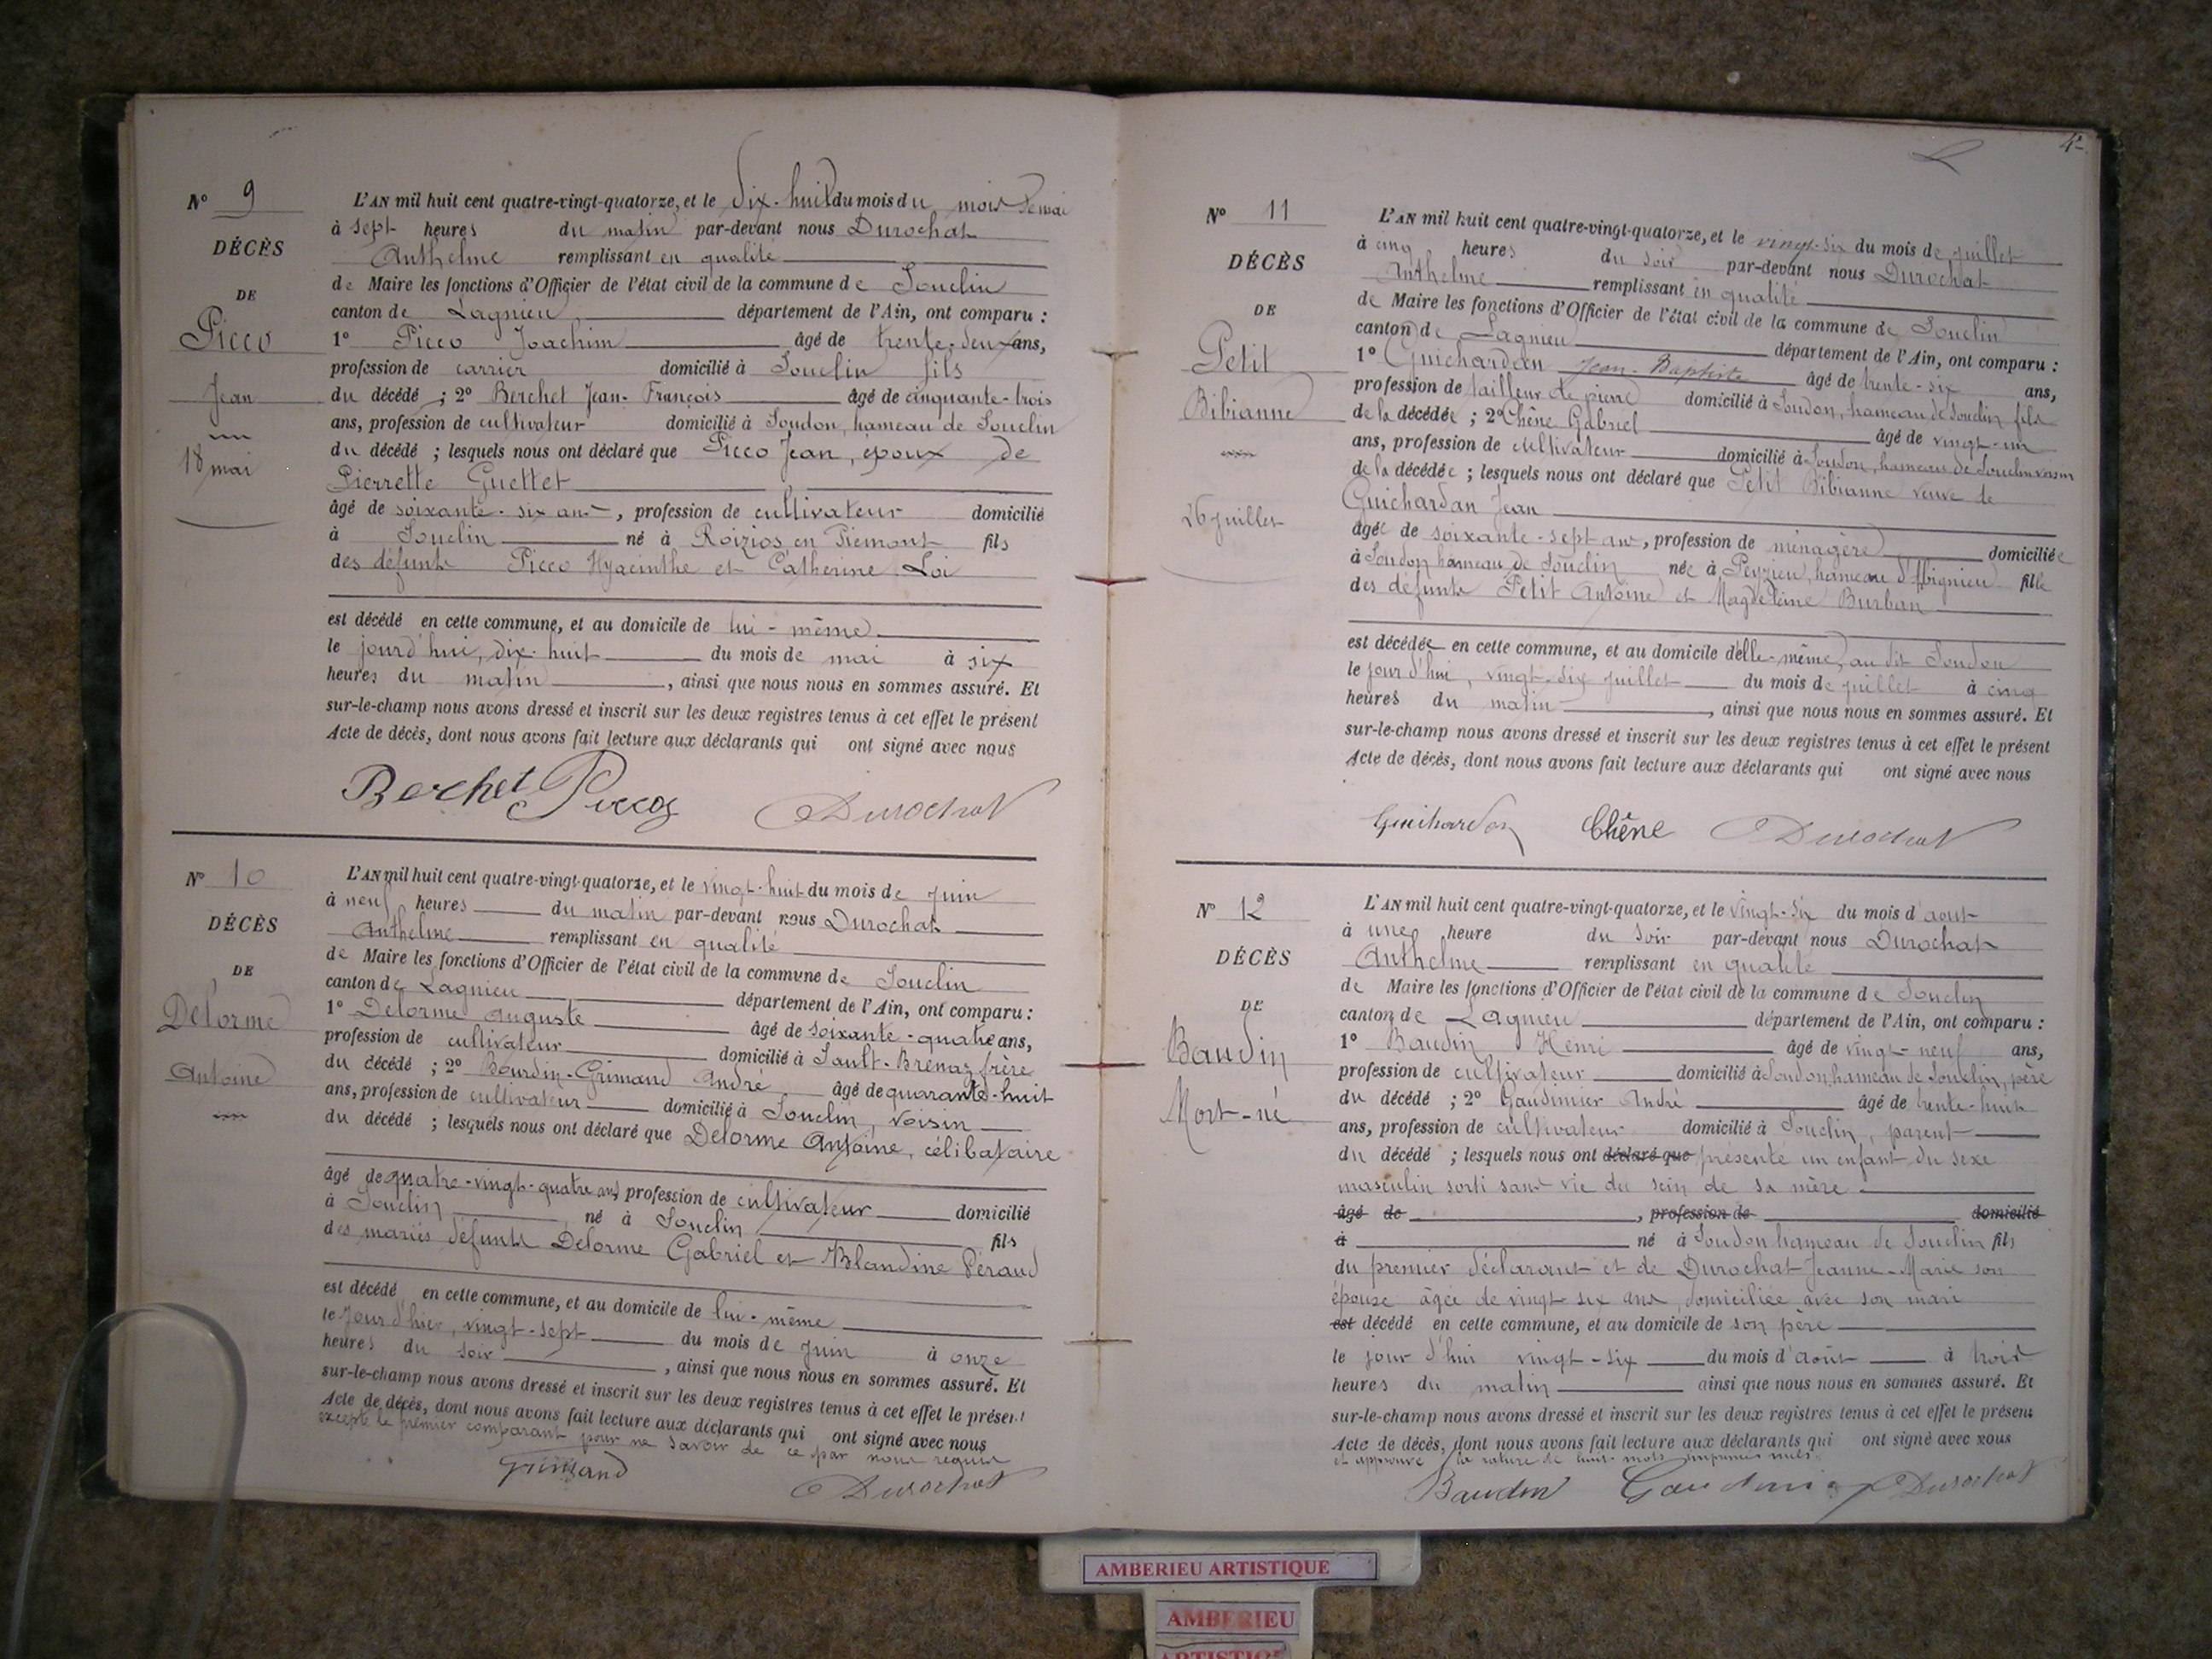 N° 9
DÉCÈS
DE
Picco
Jean
18 mai
L'AN mil huit cent quatre-vingt-quatorze, et le dix-huit du mois du mois de mai
à sept heures du matin par-devant nous Durochat
Anthelme remplissant en qualité
de Maire les fonctions d'Officier de l'état civil de la commune de Souclin
canton de Lagnieu département de l'Ain, ont comparu :
1° Picco Joachim âgé de trente-deux ans,
profession de carrier domicilié à Souclin fils
du décédé ; 2° Berchet Jean-François âgé de cinquante-trois
ans, profession de cultivateur domicilié à Soudon, hameau de Souclin
du décédé ; lesquels nous ont déclaré que Picco Jean, époux de
Pierrette Guettet
âgé de soixante-six ans, profession de cultivateur domicilié
à Souclin né à Roizios en Piemont fils
des défunts Picco Hyacinthe et Catherine Loi
est décédé en cette commune, et au domicile de lui-même
le jourd'hui, dix-huit du mois de mai à six
heures du matin, ainsi que nous nous en sommes assuré. Et
sur-le-champ nous avons dressé et inscrit sur les deux registres tenus à cet effet le présent
Acte de décès, dont nous avons fait lecture aux déclarants qui ont signé avec nous
Berchet Picco Durochat
N° 10
DÉCÈS
DE
Delorme
Antoine
L'AN mil huit cent quatre-vingt-quatorze, et le vingt-huit du mois de juin
à neuf heures du matin par-devant nous Durochat
Anthelme remplissant en qualité
de Maire les fonctions d'Officier de l'état civil de la commune de Souclin
canton de Lagnieu département de l'Ain, ont comparu :
1° Delorme Auguste âgé de soixante-quatre ans,
profession de cultivateur domicilié à Sault-Brenaz frère
du décédé ; 2° Bourdin-Grimand André âgé de quarante-huit
ans, profession de cultivateur domicilié à Souclin, voisin
du décédé ; lesquels nous ont déclaré que Delorme Antoine, célibataire
âgé de quatre-vingt-quatre ans profession de cultivateur domicilié
à Souclin né à Souclin fils
des mariés défunts Delorme Gabriel et Blandine Péraud
est décédé en cette commune, et au domicile de lui-même
le jour d'hier, vingt-sept du mois de juin à onze
heures du soir, ainsi que nous nous en sommes assuré. Et
sur-le-champ nous avons dressé et inscrit sur les deux registres tenus à cet effet le présent
Acte de décès, dont nous avons fait lecture aux déclarants qui ont signé avec nous
excepté le premier comparant pour ne savoir de ce par nous requis
Grimand Durochat
4e
N° 11
DÉCÈS
DE
Petit
Bibianne
26 juillet
L'AN mil huit cent quatre-vingt-quatorze, et le vingt-six du mois de juillet
à cinq heures du soir par-devant nous Durochat
Anthelme remplissant en qualité
de Maire les fonctions d'Officier de l'état civil de la commune de Souclin
canton de Lagnieu département de l'Ain, ont comparu :
1° Guichardan Jean-Baptiste âgé de trente-six ans,
profession de tailleur de pierre domicilié à Soudon, hameau de Souclin fils
de la décédée ; 2° Chêne Gabriel âgé de vingt-un
ans, profession de cultivateur domicilié à Soudon, hameau de Souclin voisin
de la décédée ; lesquels nous ont déclaré que Petit Bibianne veuve de
Guichardan Jean
âgée de soixante-sept ans, profession de ménagère domiciliée
à Soudon hameau de Souclin née à Peyzieu, hameau d'Arbignieu fille
des défunts Petit Antoine et Magdeleine Burban
est décédée en cette commune, et au domicile d'elle-même, au dit Soudon
le jour d'hui, vingt-six juillet du mois de juillet à cinq
heures du matin, ainsi que nous nous en sommes assuré. Et
sur-le-champ nous avons dressé et inscrit sur les deux registres tenus à cet effet le présent
Acte de décès, dont nous avons fait lecture aux déclarants qui ont signé avec nous
Guichardon Chêne Durochat
N° 12
DÉCÈS
DE
Baudin
Mort-né
L'AN mil huit cent quatre-vingt-quatorze, et le vingt-six du mois d'aout
à une heure du soir par-devant nous Durochat
Anthelme remplissant en qualité
de Maire les fonctions d'Officier de l'état civil de la commune de Souclin
canton de Lagnieu département de l'Ain, ont comparu :
1° Baudin Henri âgé de vingt-neuf ans,
profession de cultivateur domicilié à Soudon hameau de Souclin, père
du décédé ; 2° Gaudinier André âgé de trente-huit
ans, profession de cultivateur domicilié à Souclin, parent
du décédé ; lesquels nous ont déclaré que présenté un enfant du sexe
masculin sorti sans vie du sein de sa mère
âgé de , profession de domicilié
à né à Soudon hameau de Souclin fils
du premier déclarant et de Durochat Jeanne-Marie son
épouse âgée de vingt-six ans, domiciliée avec son mari
est décédé en cette commune, et au domicile de son père
le jour d'hui vingt-six du mois d'août à trois
heures du matin ainsi que nous nous en sommes assuré. Et
sur-le-champ nous avons dressé et inscrit sur les deux registres tenus à cet effet le présent
Acte de décès, dont nous avons fait lecture aux déclarants qui ont signé avec nous
et approuvé la rature de huit mots imprimés nuls
Baudin Gaudinier Durochat
AMBERIEU ARTISTIQUE
AMBERIEU
ARTISTIQUE